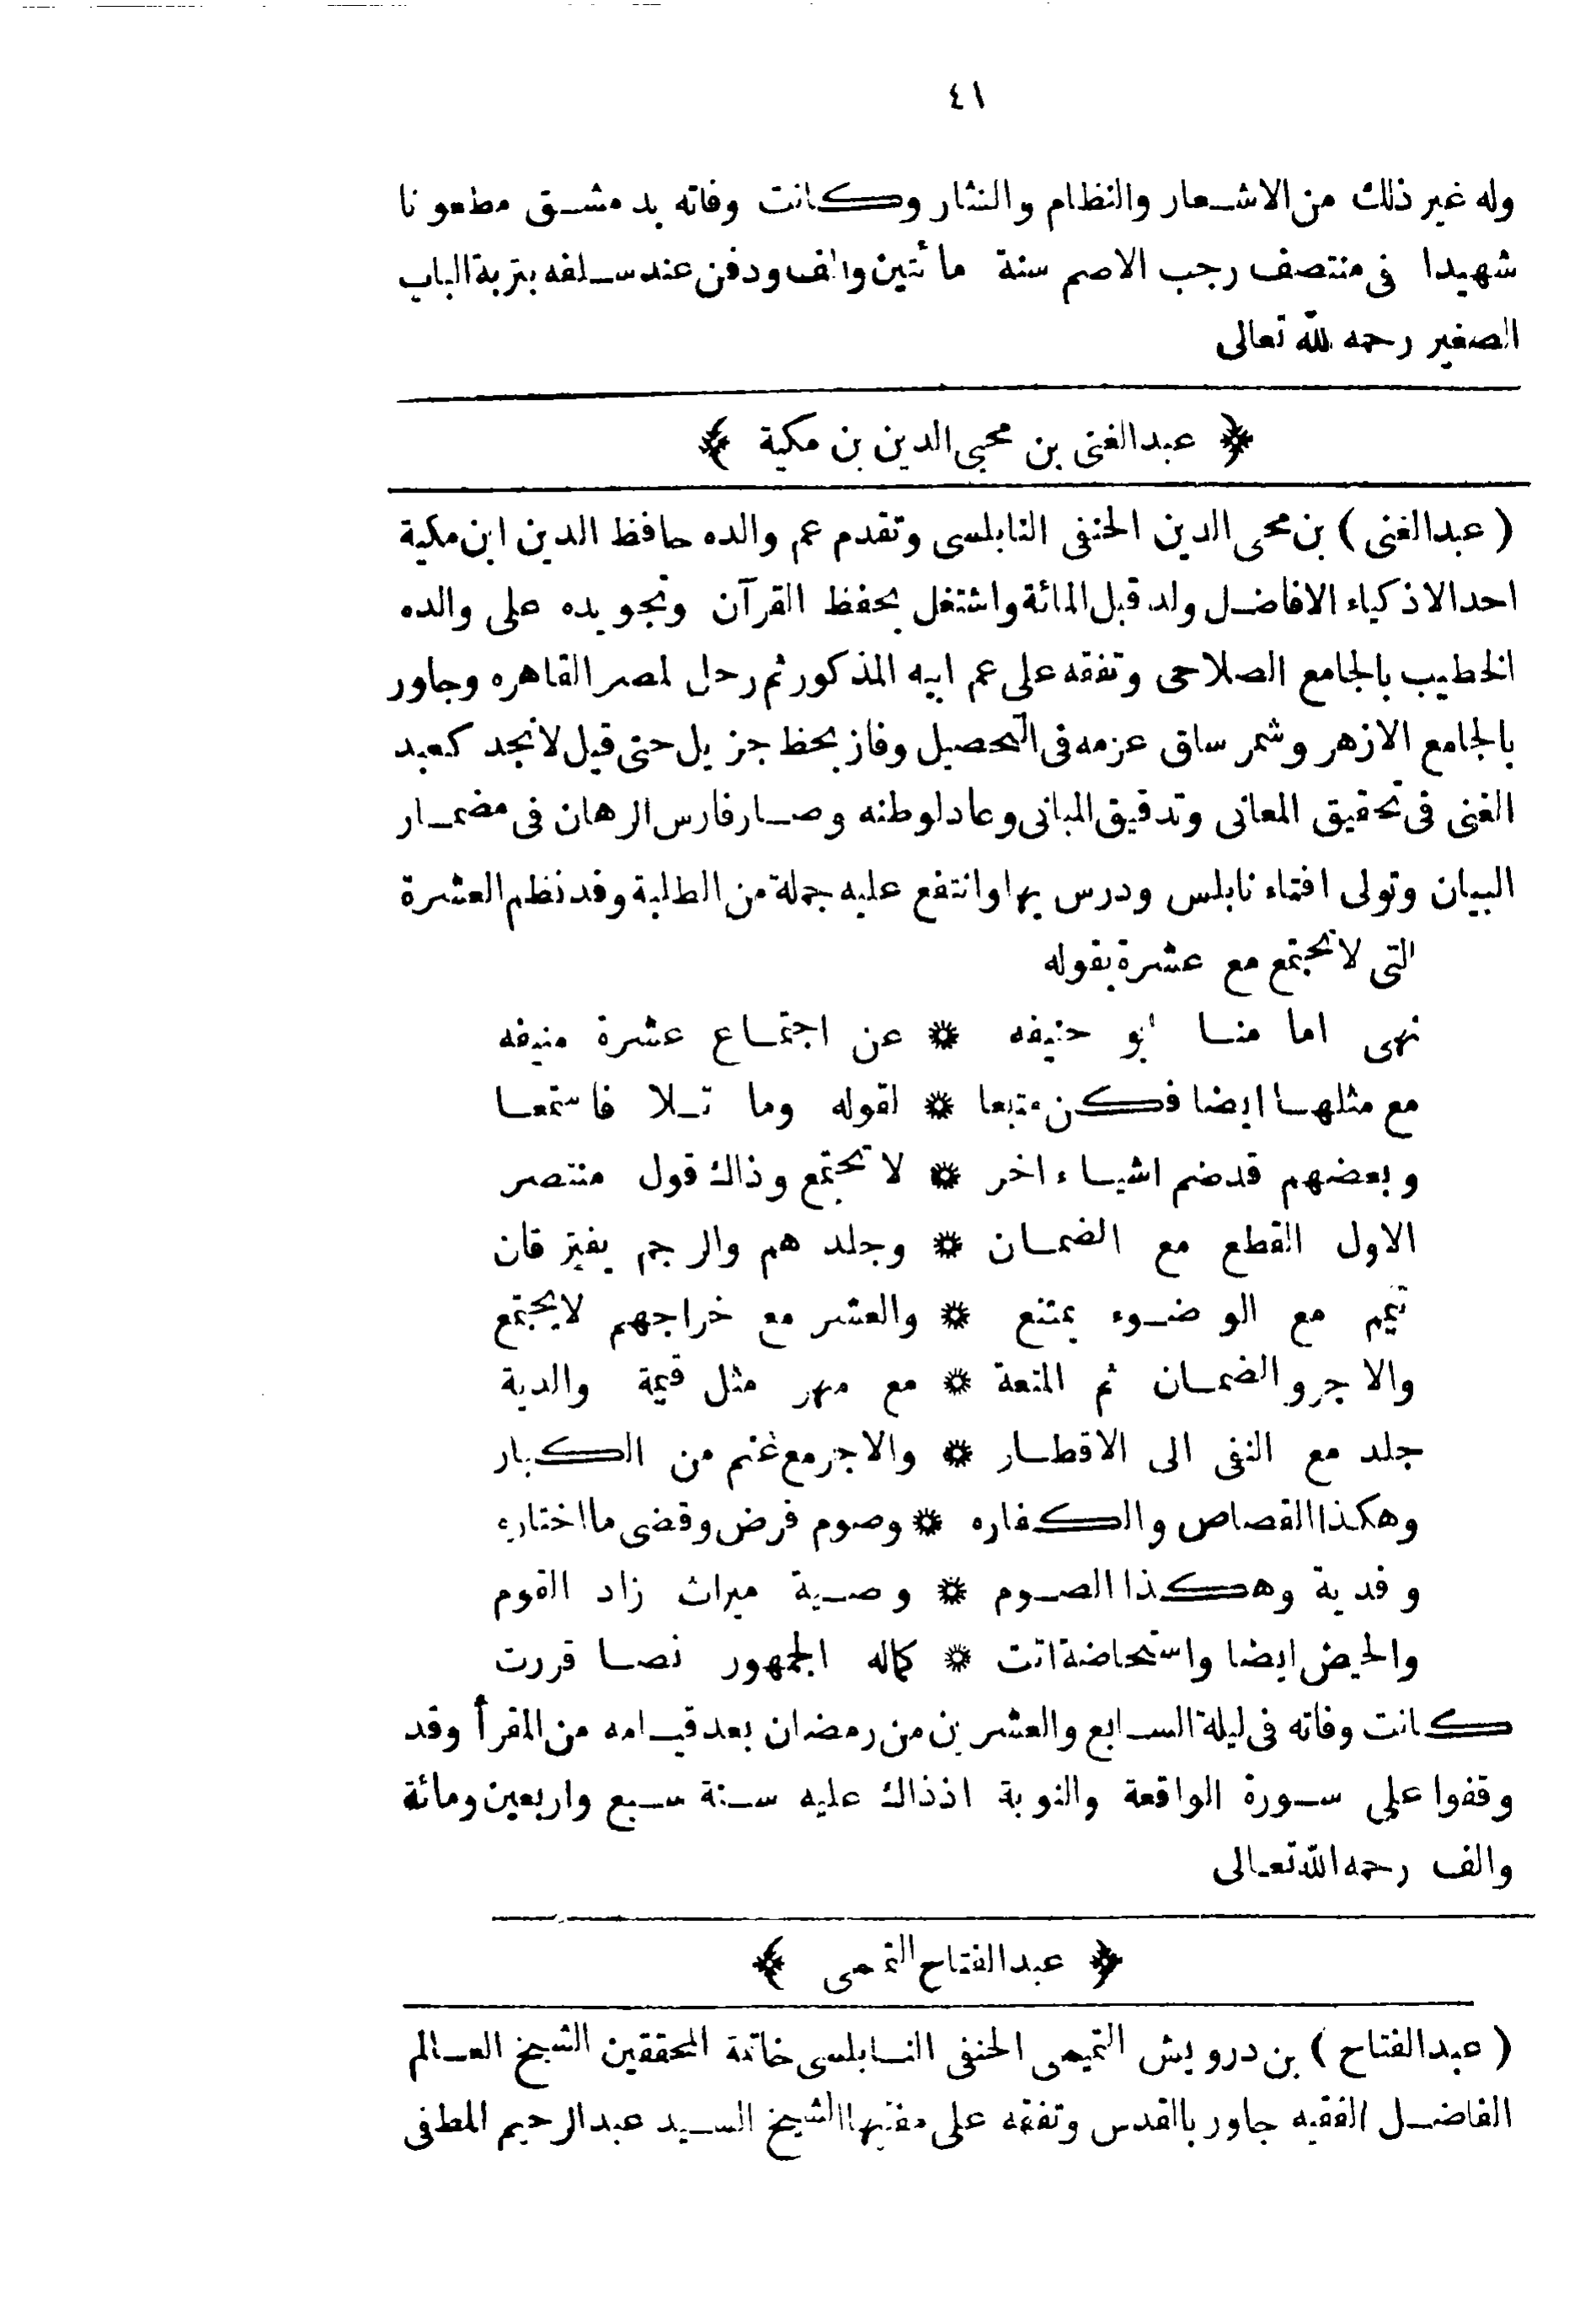 ٤١
وله غير ذلك من الاشعار والنظام والنثار وكانت وفاته بدمشق مطعونا
شهيدا فى منتصف رجب الاصم سنة مائتين والف ودفن عند سلفه بتربة الباب
الصغير رحمه لله تعالى
﴿ عبدالغنى بن محيى الدين بن مكية ﴾
( عبدالغنى ) بن محى الدين الحنفى النابلسى وتقدم عم والده حافظ الدين ابن مكية
احد الاذكياء الافاضل ولد قبل المائة واشتغل بحفظ القرآن وتجويده على والده
الخطيب بالجامع الصلاحى وتفقه على عم ابيه المذكور ثم رحل لمصر القاهره وجاور
بالجامع الازهر وشمر ساق عزمه فى التحصيل وفاز بحظ جزيل حتى قيل لانجد كعبد
الغنى فى تحقيق المعانى وتدقيق المبانى وعاد لوطنه وصار فارس الرهان فى مضمار
البيان وتولى افتاء نابلس ودرس بها وانتفع عليه جملة من الطلبة وقد نظم العشرة
التى لا تجتمع مع عشرة بقوله
نهى اما منا ابو حنيفه * عن اجتماع عشرة منيفه
مع مثلها ايضا فكن متبعا * لقوله وما تلا فاستمعا
وبعضهم قد ضم اشياء اخر * لا تجتمع وذاك قول منتصر
الاول القطع مع الضمان * وجلد هم والرجم يفترقان
تيمم مع الوضوء يمتنع * والعشر مع خراجهم لا يجتمع
والاجر والضمان ثم المتعة * مع مهر مثل قيمة والدية
جلد مع النفى الى الاقطار * والاجر مع غنم من الكبار
وهكذا القصاص والكفاره * وصوم فرض وقضى ما اختاره
وفدية وهكذا الصوم * وصية ميراث زاد القوم
والحيض ايضا واستحاضة اتت * كماله الجمهور نصا قررت
كانت وفاته فى ليلة السابع والعشرين من رمضان بعد قيامه من المقرأ وقد
وقفوا على سورة الواقعة والنوبة اذذاك عليه سنة سبع واربعين ومائة
والف رحمه الله تعالى
﴿ عبدالفتاح التمى ﴾
( عبدالفتاح ) بن درويش التميمى الحنفى النابلسى خاتمة المحققين الشيخ العالم
الفاضل الفقيه جاور بالقدس وتفقه على مفتيها الشيخ السيد عبدالرحيم اللطفى